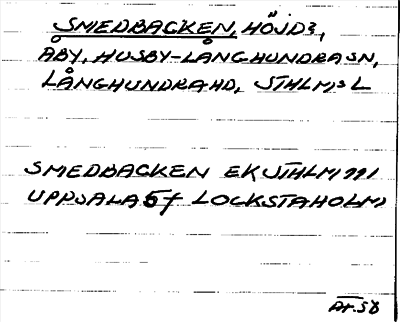 SMEDBACKEN, HÖJD3,
ÅBY, HUSBY-LÅNGHUNDRA SN,
LÅNGHUNDRA HD, STHLMS L
SMEDBACKEN EK STHLM 1991
UPPSALA 5f LOCKSTAHOLM
AT.58